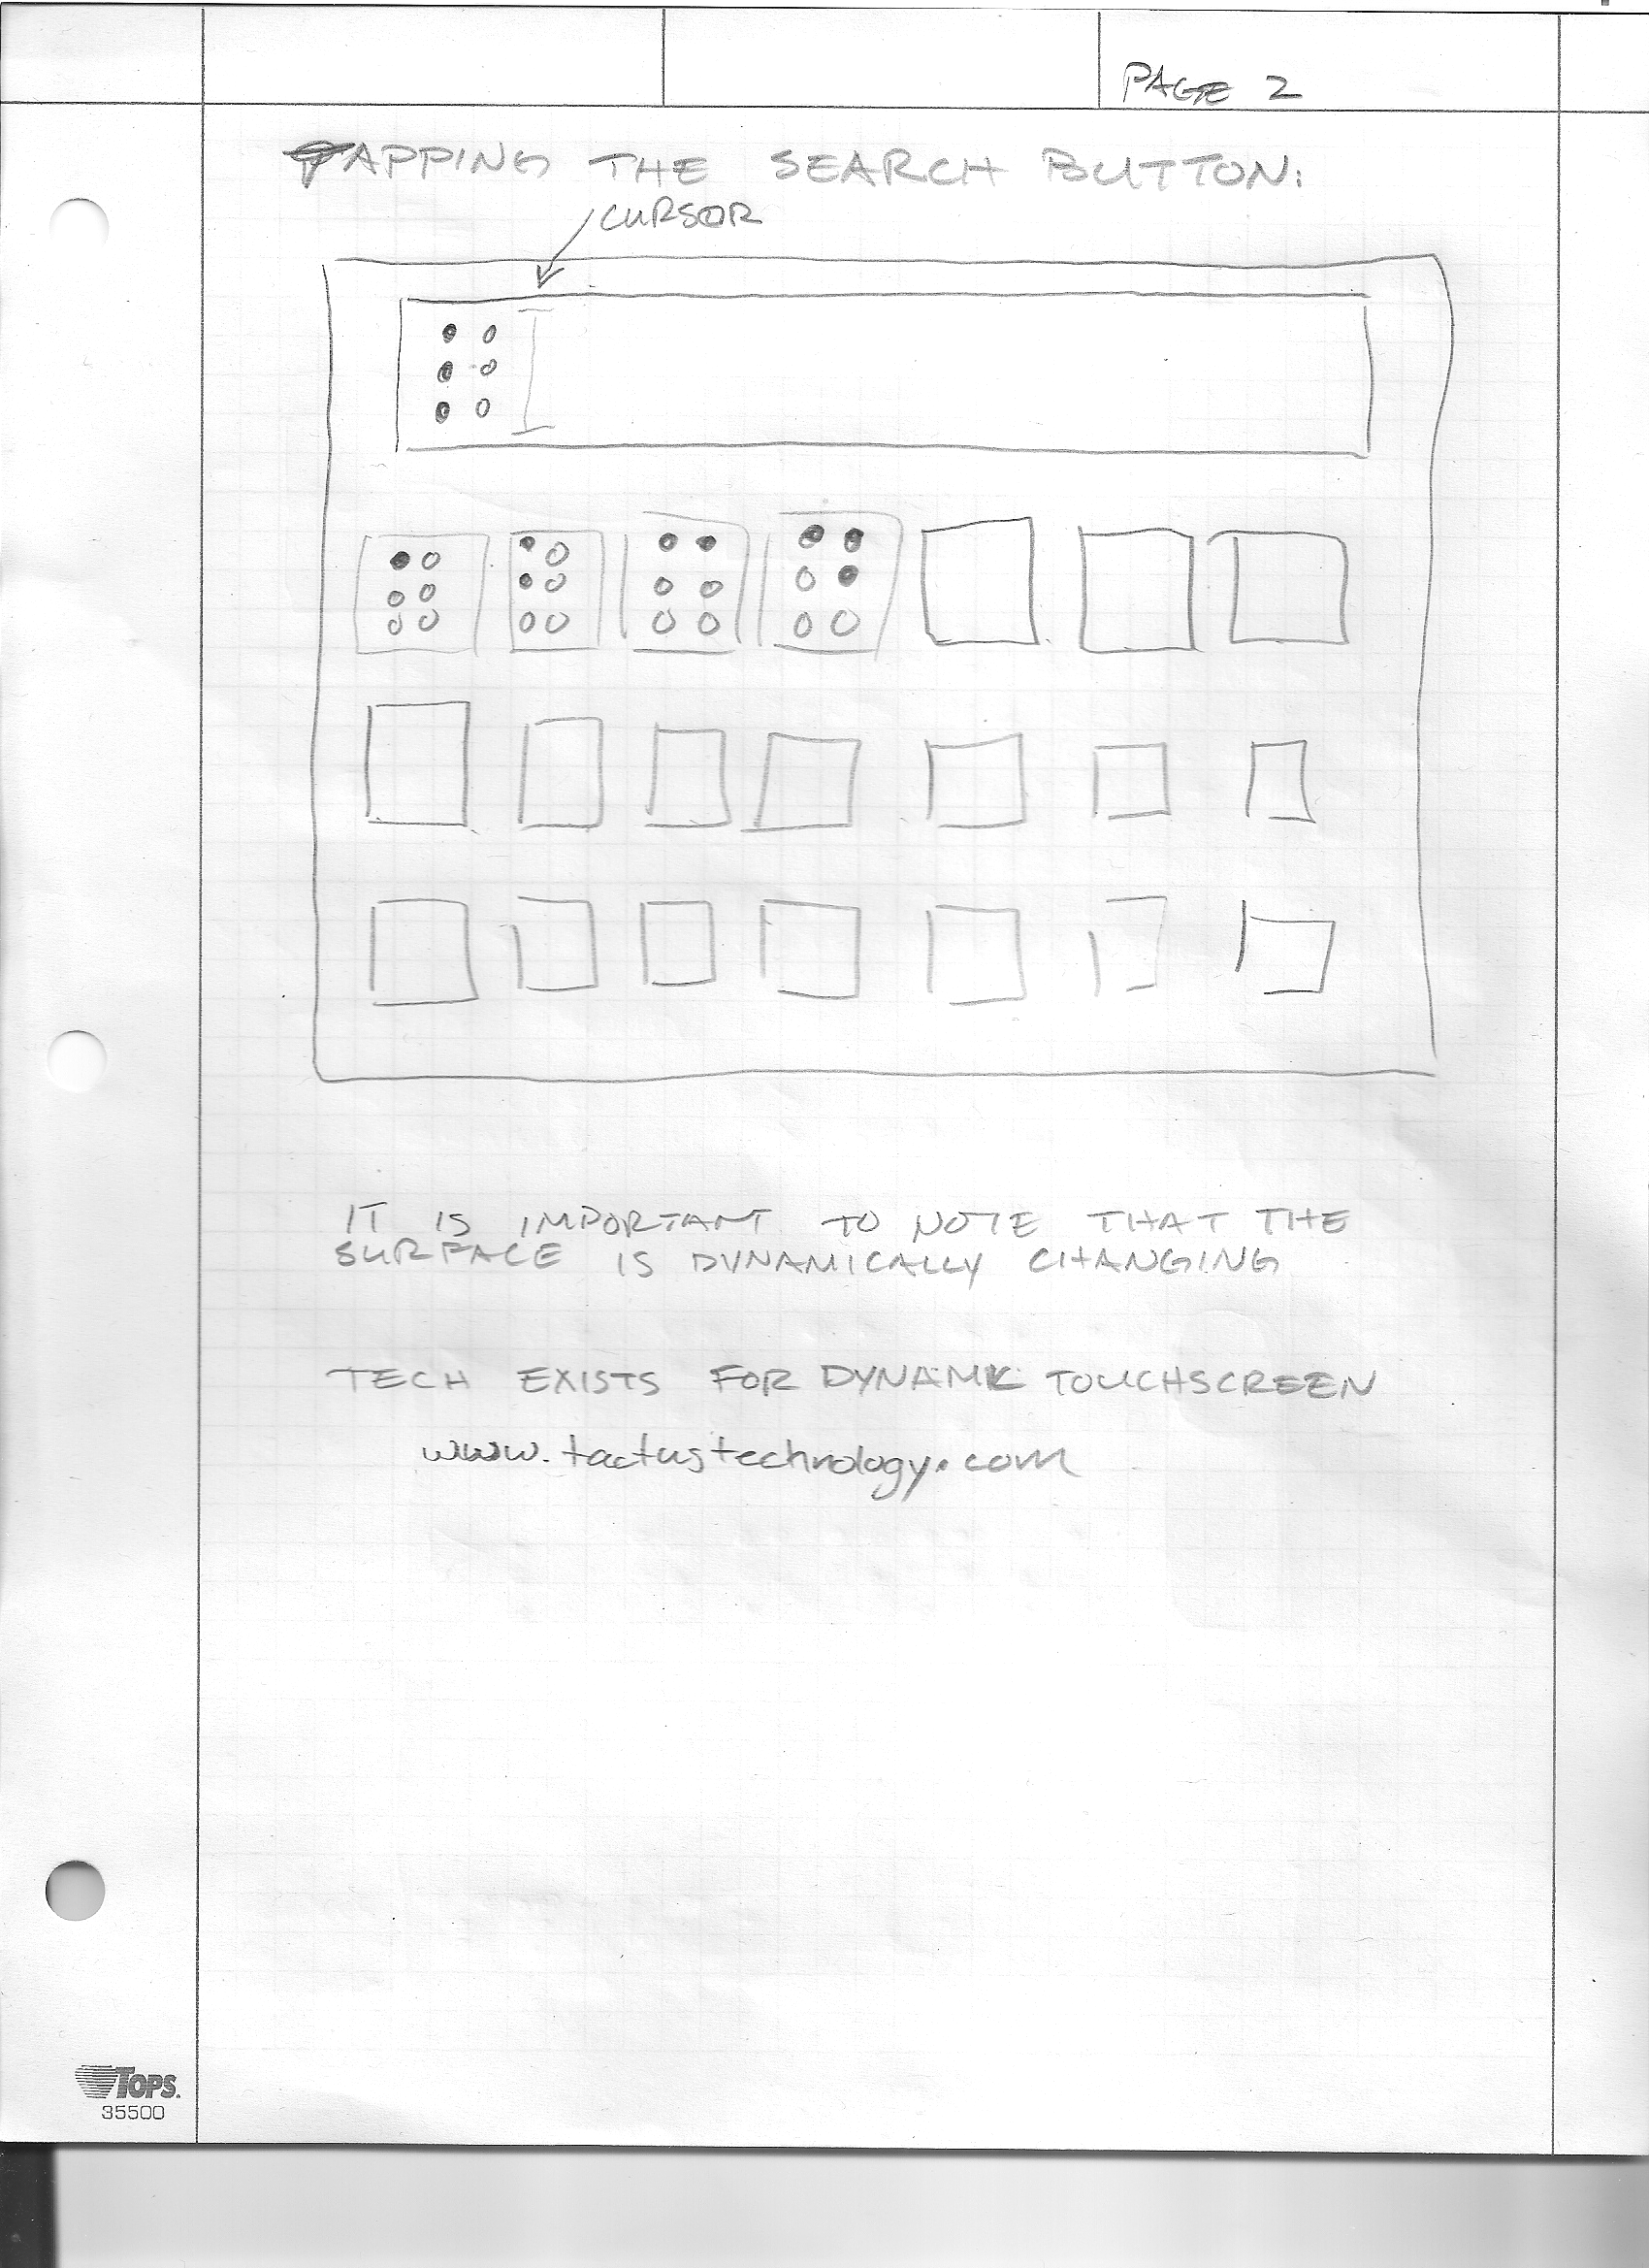 PAGE 2
TAPPING THE SEARCH BUTTON:
CURSOR
IT IS IMPORTANT TO NOTE THAT THE
SURFACE IS DYNAMICALLY CHANGING
TECH EXISTS FOR DYNAMIC TOUCHSCREEN
www.tactustechnology.com
TOPS.
35500